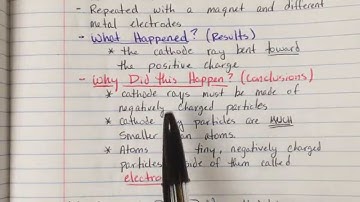 - Repeated with a magnet and different
metal electrodes
- What Happened? (Results)
* the cathode ray bent toward
the positive charge
- Why Did this Happen? (Conclusions)
* cathode rays must be made of
negatively charged particles
* cathode particles are MUCH
smaller atoms.
* Atoms tiny, negatively charged
particles of them called